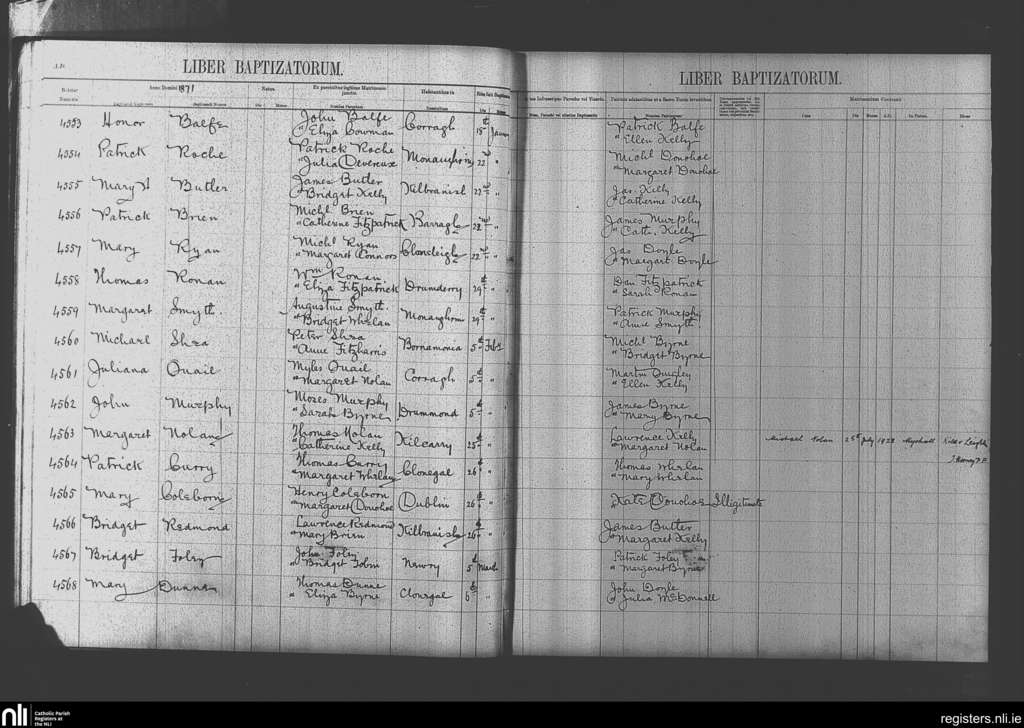 LIBER BAPTIZATORUM.
Anno Domini 1871
Ex parentibus legitimo Matrimonio junctis
Natus.
Habitantibus in
4553 Honor Balfe John Balfe Corragh 15th January
" Eliza Bowman
4554 Patrick Roche Patrick Roche Monaughrim 22nd "
" Julia Devereux
4555 Mary A Butler James Butler Kilbranish 22nd "
" Bridget Kelly
4556 Patrick Brien Michl Brien Barragh 22nd "
" Catherine Fitzpatrick
4557 Mary Ryan Michl Ryan Clonsleigh 22nd "
" Margaret Connors
4558 Thomas Ronan Wm Ronan Drumderry 29th "
" Eliza Fitzpatrick
4559 Margaret Smyth. Augustine Smyth. Monaughrim 29th "
" Bridget Whelan
4560 Michael Shea Peter Shea Bornamonea 5th Feb
" Anne Fitzharris
4561 Juliana Quail Myles Quail Corragh 5th "
" Margaret Nolan
4562 John Murphy Moses Murphy Drummond 5th "
" Sarah Byrne
4563 Margaret Nolan Thomas Nolan Kilcarry 25th "
" Catherine Kelly
4564 Patrick Curry Thomas Curry Clonegal 26th "
" Margaret Whelan
4565 Mary Coleborn Henry Coleborn Dublin 26th "
" Margaret Donohoe
4566 Bridget Redmond Lawrence Redmond Kilbranish 26th "
" Mary Brien
4567 Bridget Foley John Foley Newry 5th March
" Bridget Tobin
4568 Mary Dunne Thomas Dunne Clonegal 6th "
" Eliza Byrne
LIBER BAPTIZATORUM.
Matrimonium Contraxit
Patrick Balfe
" Ellen Kelly
Michl Donohoe
" Margaret Donohoe
Jas Kelly
" Catherine Kelly
James Murphy
" Cath. Kelly
Jas Doyle
" Margaret Doyle
Dan Fitzpatrick
" Sarah Ronan
Patrick Murphy
" Anne Smyth.
Michl Byrne
" Bridget Byrne
Martin Quigley
" Ellen Kelly
James Byrne
" Mary Byrne
Lawrence Kelly Michael Nolan July Myshall
" Margaret Nolan
Thomas Whelan
" Mary Whelan
Kate Donohoe Illegitimate
James Butler
" Margaret Kelly
Patrick Foley
" Margaret Byrne
John Doyle
" Julia McDonnell
nli Catholic Parish
Registers at
the NLI
registers.nli.ie